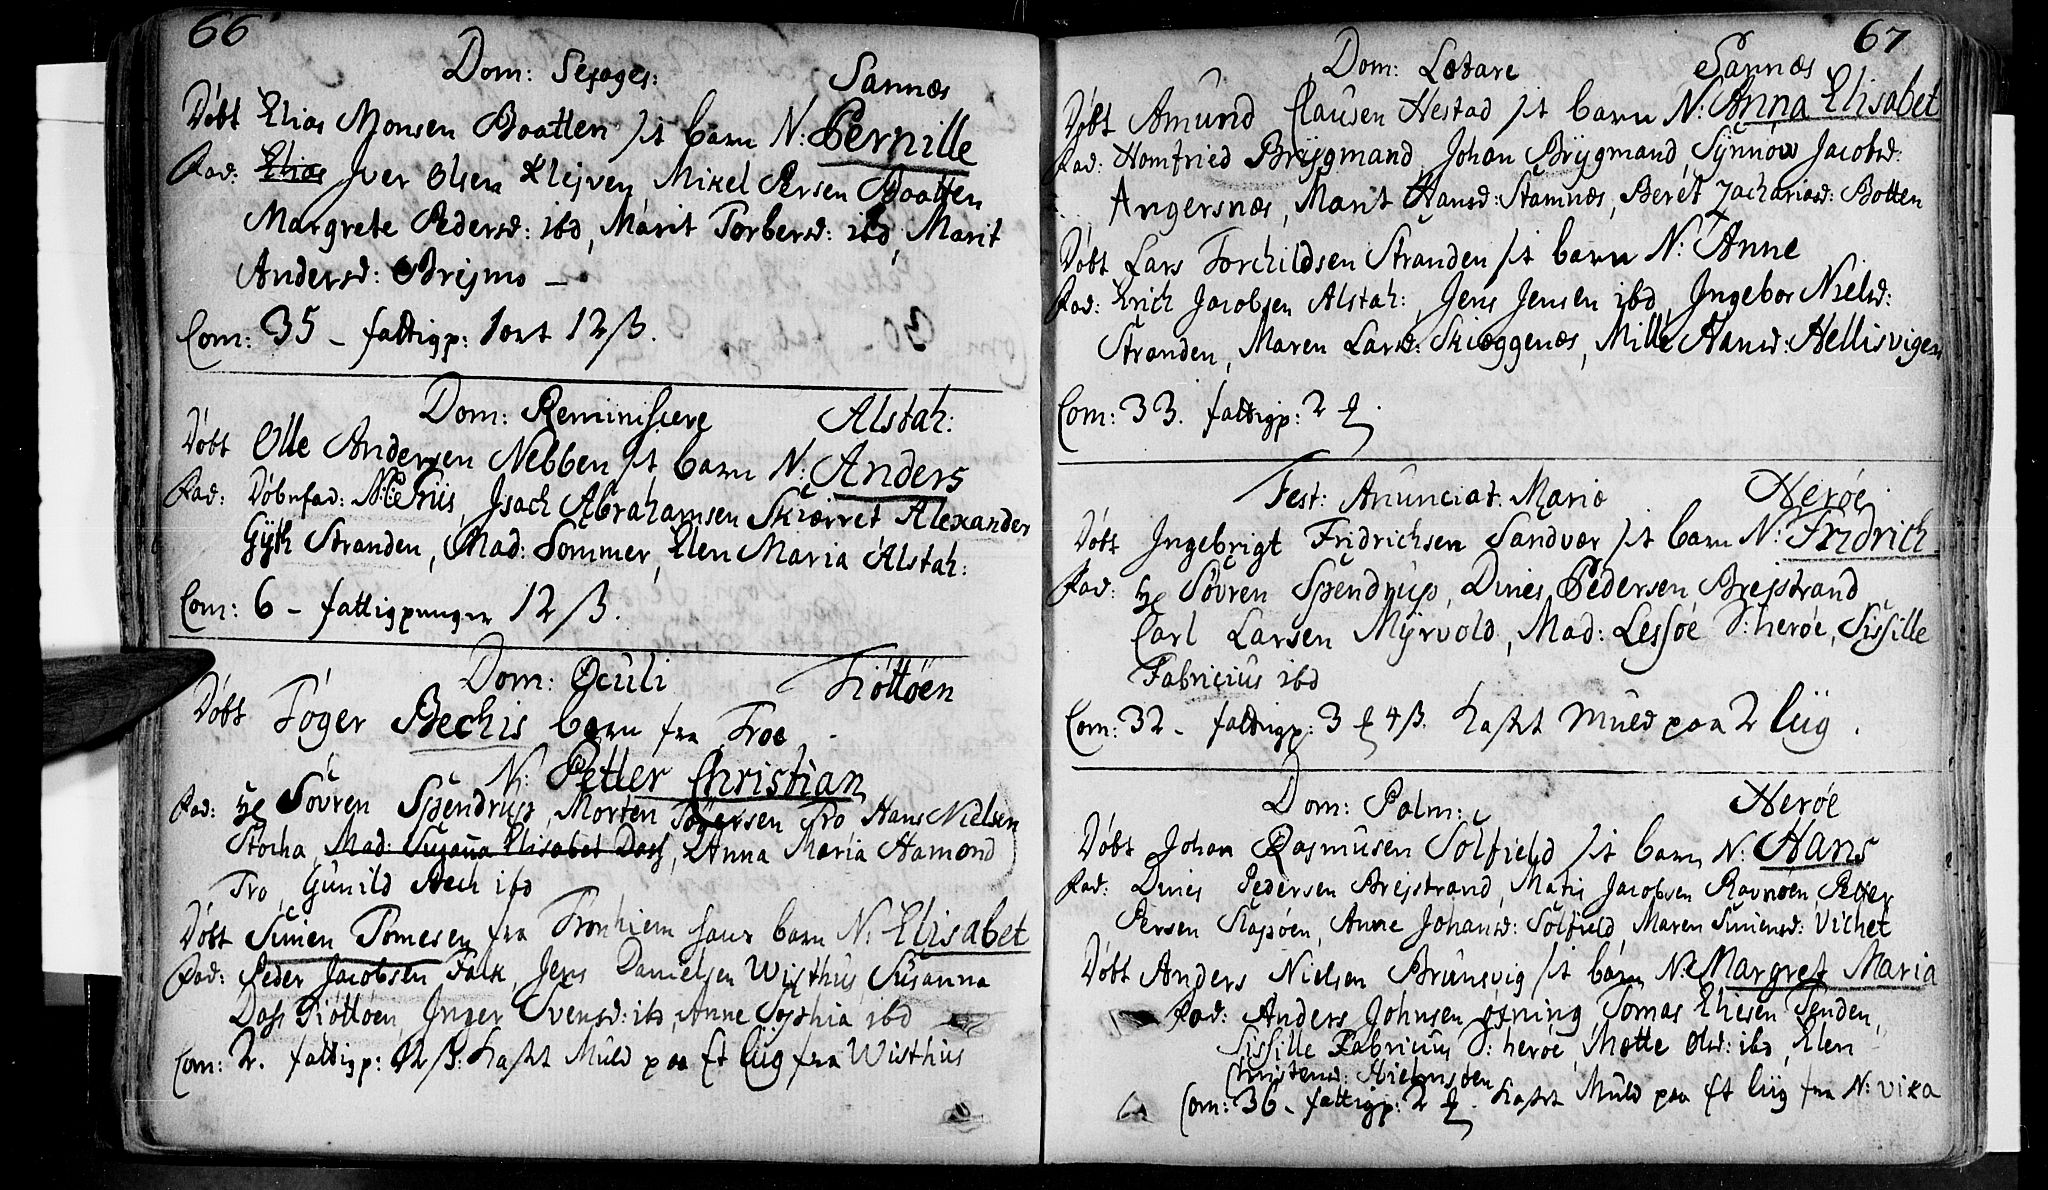 66
Dom: Sexages: Sannæs
Døbt Elias Monsen Baatten sit barn N: Pernille
Fad: Elias Jver Olsen Klejven Mikel Persen Baatten
Margrete Pedersd: ibd, Marit Torbersd: ibd, Marit
Andersd: Brejmo —
Com: 35 – fattigp: 1 ort 12 ß.
Dom: Reminiscere Alstah:
Døbt Olle Andersen Nebben sit barn N: Anders
Fad: Døbefad: Friis, Jsach Abrahamsen Skierret Alexander
Gyth Stranden, Mad: Sommer, Elen Maria Alstah:
Com: 6 – fattigpenger 12 ß.
Dom: Oculi Tiøttøen
Døbt Tøger Bechis barn fra Troe
N: Petter Christian
Fad: Hr Søvren Spendrup, Morten Tøgersen Tro Hans Nielsen
Stocha, Mad: Susana Elisabet Dass, Anna Maria Hamond
Tro, Gunild Bech ibd
Døbt Simen Tomesen fra Tronhiem hans barn N: Elisabet
Fad: Peder Jacobsen Falk, Jens Danielsen Wisthus, Susanna
Dass Tiøttøen, Jnger Svensd: ibd, Anne Sophia ibd
Com: 2. fattigp: 12 ß. Kast Muld paa Et liig fra Wisthus
67
Dom: Lætare Sannæs
Døbt Amund Clausen Hestad sit barn N: Anna Elisabet
Fad: Homfried Brygmand, Johan Brygmand, Synnøw Jacobsd:
Angersnæs, Marit Hansd: Stamnæs, Beret Zachariasd: Botten
Døbt Lars Torchildsen Stranden sit barn N: Anne
Fad: Erich Jacobsen Alstah:, Jens Jensen ibd, Jngebor Nielsd:
Stranden, Maren Larsd: Skiæggenæs, Mille Hansd: Hellisvigen
Com: 33. fattigp: 2
Fest: Anunciat: Mariæ Herøe
Døbt Jngebrigt Fridrichsen Sandvær sit barn N: Fridrich
Fad: Hr Søvren Spendrup, Dines Pedersen Brejstrand
Carl Larsen Myrvold, Mad: Lessøe S: herøe, Sissille
Fabricius ibd
Com: 32 – fattigp: 3 4 ß. Kast Muld paa 2 liig.
Dom: Palm: Herøe
Døbt Johan Rasmusen Sølfield sit barn N: Hans
Fad: Dines Pedersen Brejstrand, Matis Jacobsen Ravnøen, Petter
Persen Slapøen, Anne Johansd: Sølfield, Maren Simensd: Vichet
Døbt Anders Nielsen Brunsvig sit barn N: Margret Maria
Fad: Anders Johnsen øxning Tomas Eliesen Tenden,
Sissille Fabricius S: herøe, Mette Olsd: ibd, Elen
Christensd: Hielmsøen
Com: 36 – fattigp: 2 . Kast Muld paa Et liig fra N: vika